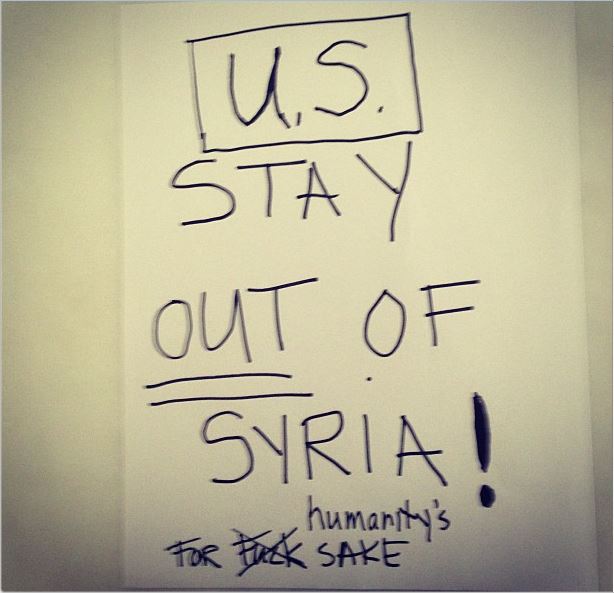 U.S.
STAY
OUT OF
SYRIA!
humanity's
FOR Fuck SAKE